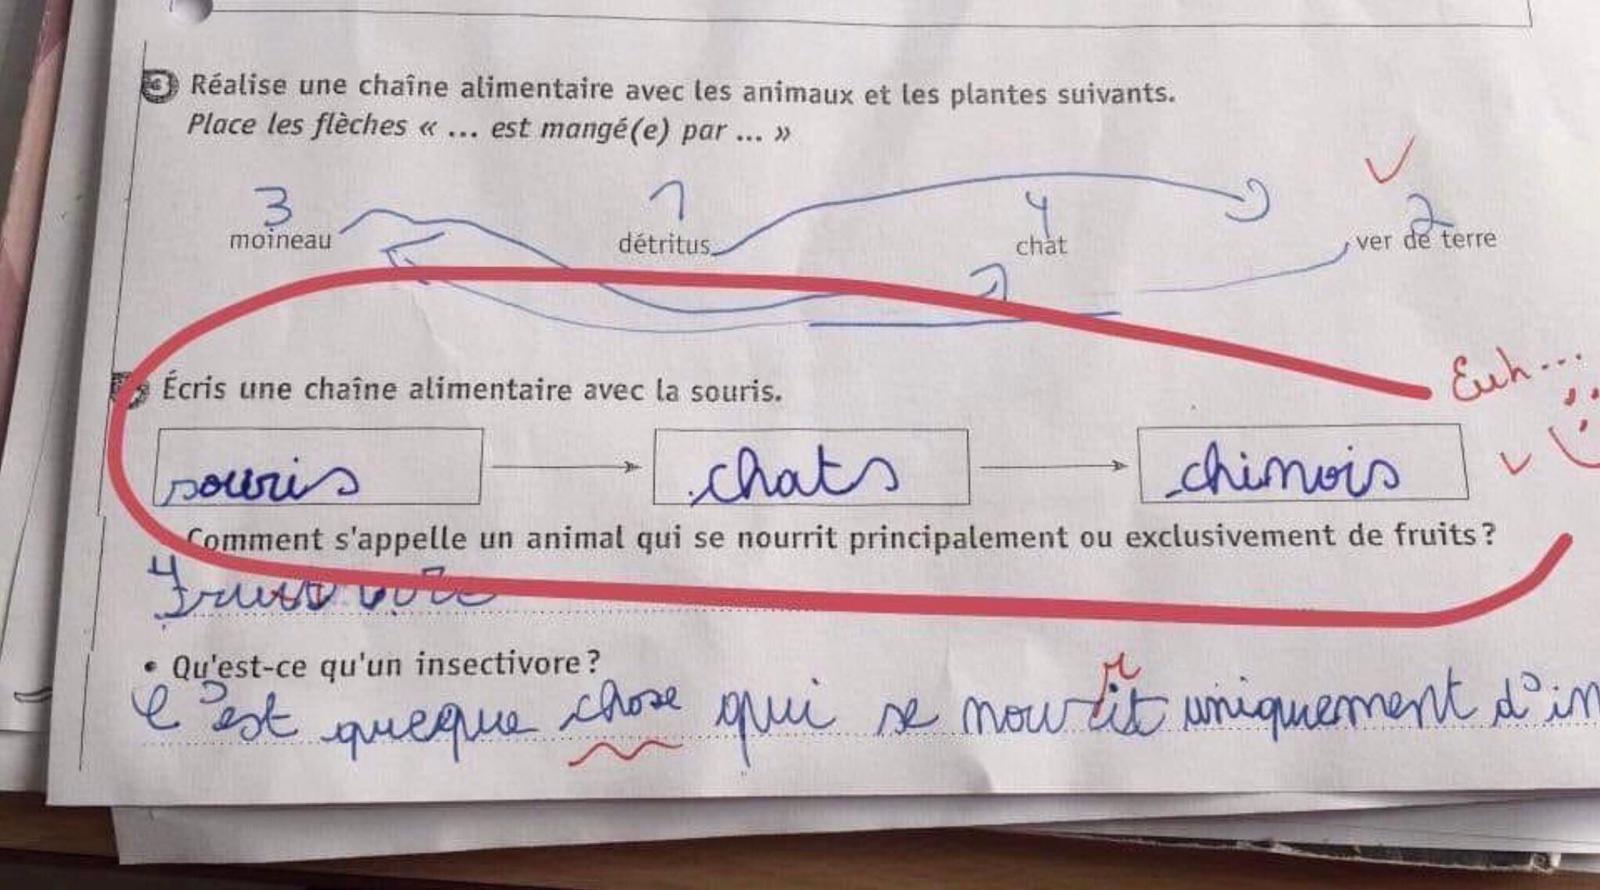 Réalise une chaîne alimentaire avec les animaux et les plantes suivants.
Place les flèches « ... est mangé(e) par ... »
3 1 4 2
moineau détritus chat ver de terre
Écris une chaîne alimentaire avec la souris.
Euh...
souris chats chinois
Comment s'appelle un animal qui se nourrit principalement ou exclusivement de fruits ?
• Qu'est-ce qu'un insectivore ?
r
C'est quecque chose qui se nourit uniquement d'in